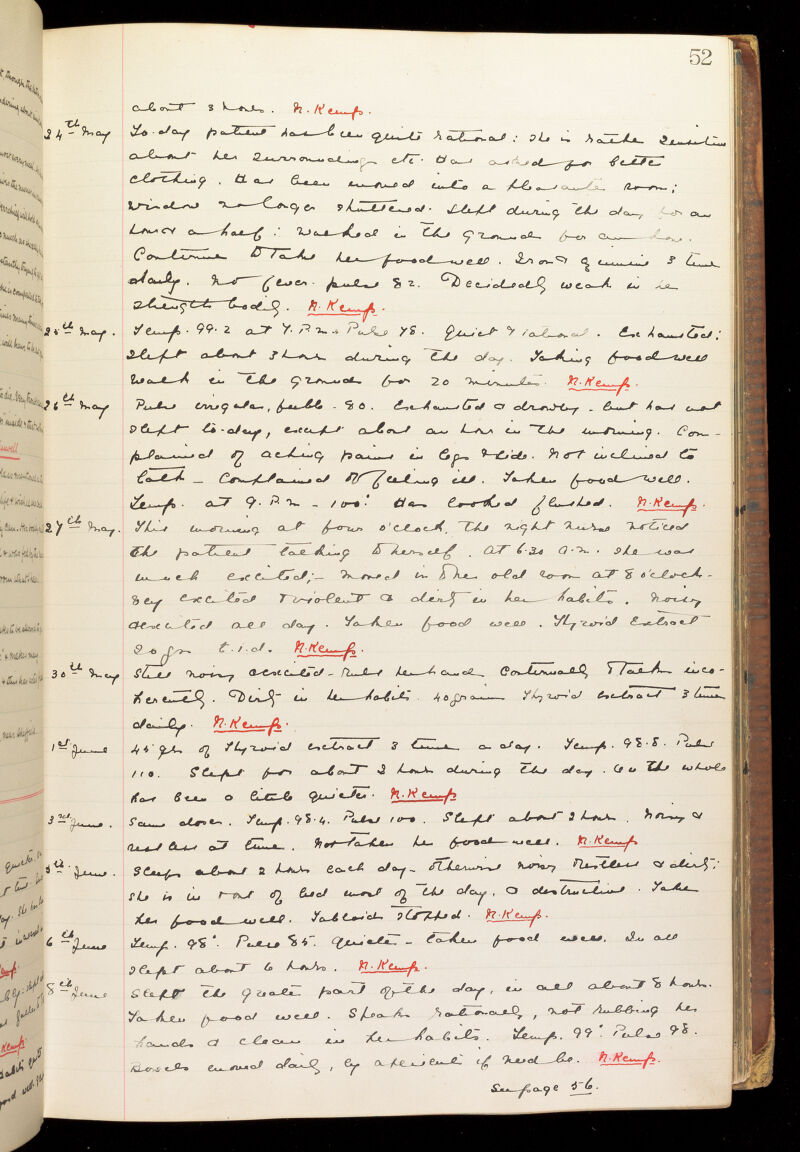 52
about 3 hours. N. Kemp.
24th May To-day patient has been quite rational: she is rather sensitive
about her surroundings etc. Has asked for better
clothing. Has been moved into a pleasanter room;
window no longer shuttered. Slept during the day for an
hour & a half: walked in the grounds for an hour.
Continues to take her food well. Iron & quinine 3 times
daily. No fever. pulse 82. Decidedly weak in her
strength bodily. N. Kemp.
25th May. Temp. 99.2 at 7. P.m. Pulse 78. Quiet & rational. Exhausted:
slept about 3 hours during the day. Taking food well
walk in the grounds for 20 minutes. N. Kemp.
26th May Pulse irregular, feeble. 80. Exhausted & drowsy - but has not
slept to-day, except about an hour in the morning. Com-
plained of aching pains in legs & side. Not inclined to
talk - Complained of feeling ill. Taken food well.
Temp. at 9. P.m - 100.° Has looked flushed. N. Kemp.
27th May. This morning at four o'clock, the night nurse noticed
the patient talking to herself. At 6.30 a.m. she was
much excited;- moved in to her old room at 8 o'clock-
Very excited & violent & dirty in her habits. Noisy
& excited all day. Taken food well. Thyroid Extract
20 grs t.i.d. N. Kemp.
30th May Still noisy & excited - rubs her hands continually & talks inco-
herently. Dirty in her habits. 40 grains Thyroid extract 3 times
daily. N. Kemp.
1st June 45 grs of Thyroid extract 3 times a day. Temp. 98.8. Pulse
110. Slept for about 2 hours during the day. On the whole
has been a little quieter. N. Kemp
3rd June. Same doses. Temp. 98.4. Pulse 100. Slept about 2 hours. Noisy &
restless at times. Not taken her food well. N. Kemp
5th June. Sleeps about 2 hours each day - otherwise noisy & restless & dirty:
she is in & out of bed most of the day, & destructive. Takes
her food well. Tabloids stopped. N. Kemp.
6th June Temp. 98°. Pulse 85. Quieter - taken food well. In all
slept about 6 hours. N. Kemp.
8th June Slept the greater part of the day, in all about 8 hours.
Taken food well. Speaks rationally, not rubbing her
hands & clean in her habits. Temp. 99° Pulse 98.
Bowels moved daily, by aperients if need be. N. Kemp.
See page 56.